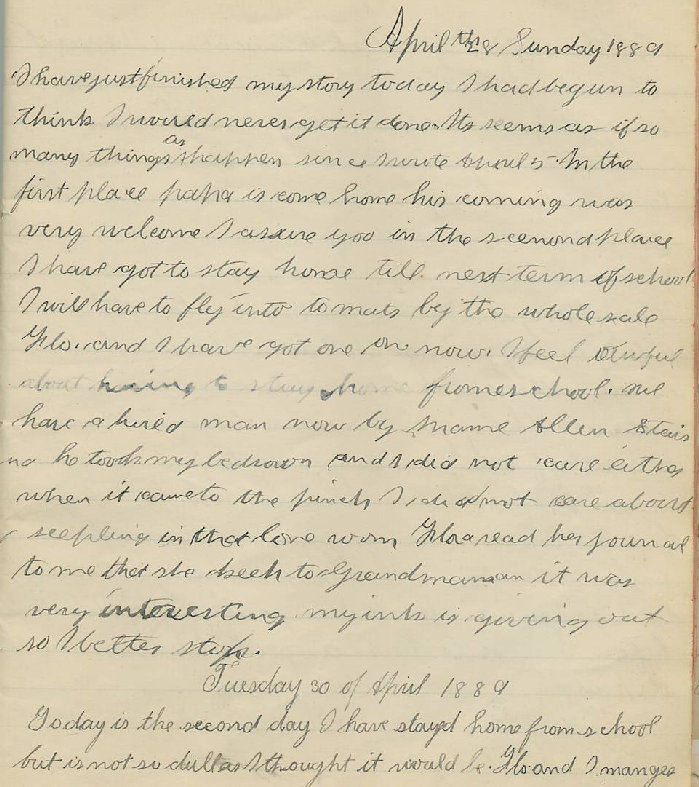 April 28th Sunday 1889
I have just finished my story today I had begun to
think I would never get it done. Its seems as if so
many things as happen since I wrote April 5 In the
first place papa is come home his coming was
very welcome I assure you in the second place
I have got to stay home till next term of school
I will have to fly into to mats by the whole sale
Flo. and I have got one on now. I feel
about having to stay home from school. we
have a hired man now by name Allen Stairs
he took my bedroom and I did not care either
when it came to the pinch I did not care about
seepling in that lone room Floa read her journal
to me that she keeh to Grandmaman it was
very interesting my ink is giving out
so I better stop.
Tuesday 30 of April 1889
Today is the second day I have stayd home from school
but is not so dull as I thought it would be. Flo and I manges